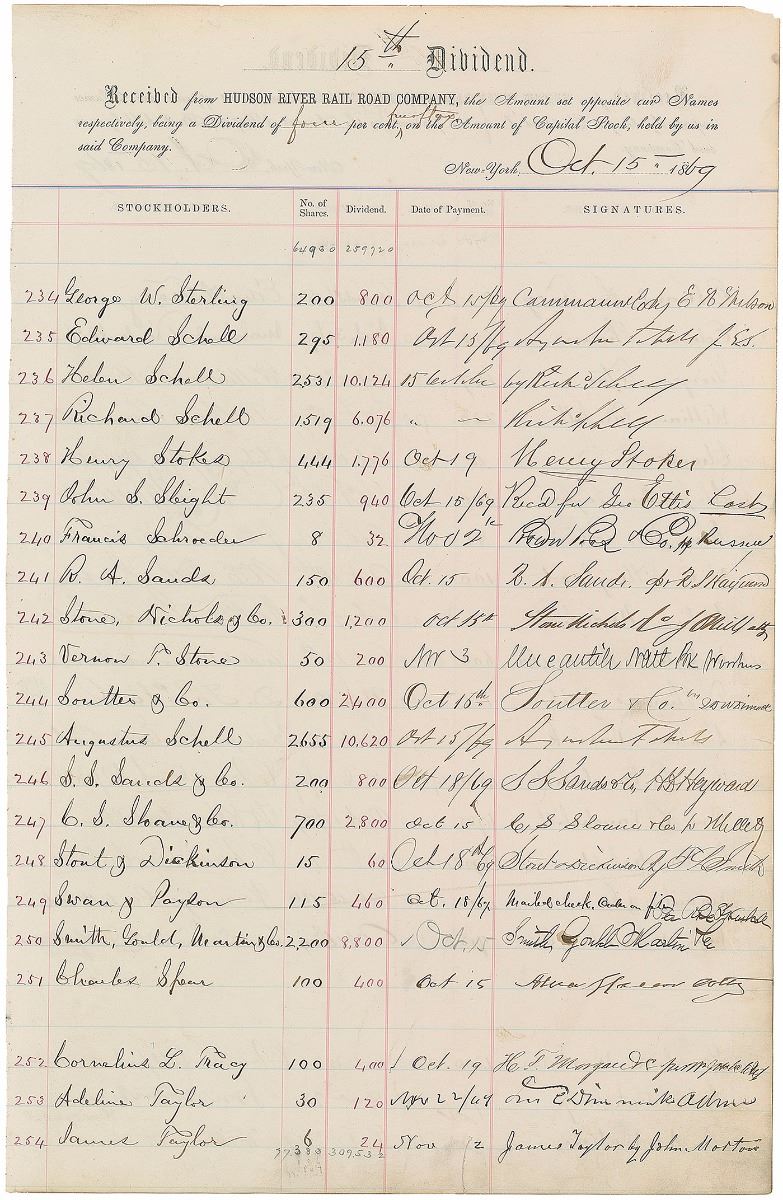 15th Dividend.
Received from HUDSON RIVER RAIL ROAD COMPANY, the Amount set opposite our Names
respectively, being a Dividend of four per cent, on the Amount of Capital Stock, held by us in
said Company.
New-York, Oct. 15" 1869
STOCKHOLDERS. No. of Shares. Dividend. Date of Payment. SIGNATURES.
64930 259720
234 George W. Sterling 200 800 Oct 15/69
235 Edward Schell 295 1.180 Oct 15/69 Augustus Schell
236 Helen Schell 2531 10.124 15 October by Richd Schell
237 Richard Schell 1519 6.076 " — Richd Schell
238 Henry Stokes 444 1.776 Oct 19 Henry Stokes
239 John S. Sleight 235 940 Oct 15/69 Recd for Geo Ellis Cash
240 Francis Schroeder 8 32 Nov 2
241 R. A. Sands 150 600 Oct. 15 R. A. Sands
242 Stone, Nichols & Co. 300 1,200 Oct 15th Stone Nichols & Co
243 Vernon T. Stone 50 200 Nov 3 Mercantile Natl Bk
244 Soutter & Co. 600 2,400 Oct 16th Soutter & Co.
245 Augustus Schell 2655 10.620 Oct 15/69 Augustus Schell
246 S. S. Sands & Co. 200 800 Oct 18/69 S S Sands & Co, H B Heyward
247 C. S. Sloane & Co. 700 2,800 Oct 15 C S Sloane & Co
248 Stout & Dickinson 15 60 Oct 18th 69 Stout & Dickinson
249 Swan & Payson 115 460 Oct. 18/69 Mailed check. Order on file
250 Smith, Gould, Martin & Co. 2,200 8,800 Oct. 15 Smith Gould Martin & Co
251 Charles Spear 100 400 Oct 15
252 Cornelius L. Tracy 100 400 Oct. 19
253 Adeline Taylor 30 120 Nov 22/69
254 James Taylor 6 24 Nov 2 James Taylor by John Morton
77383 309532